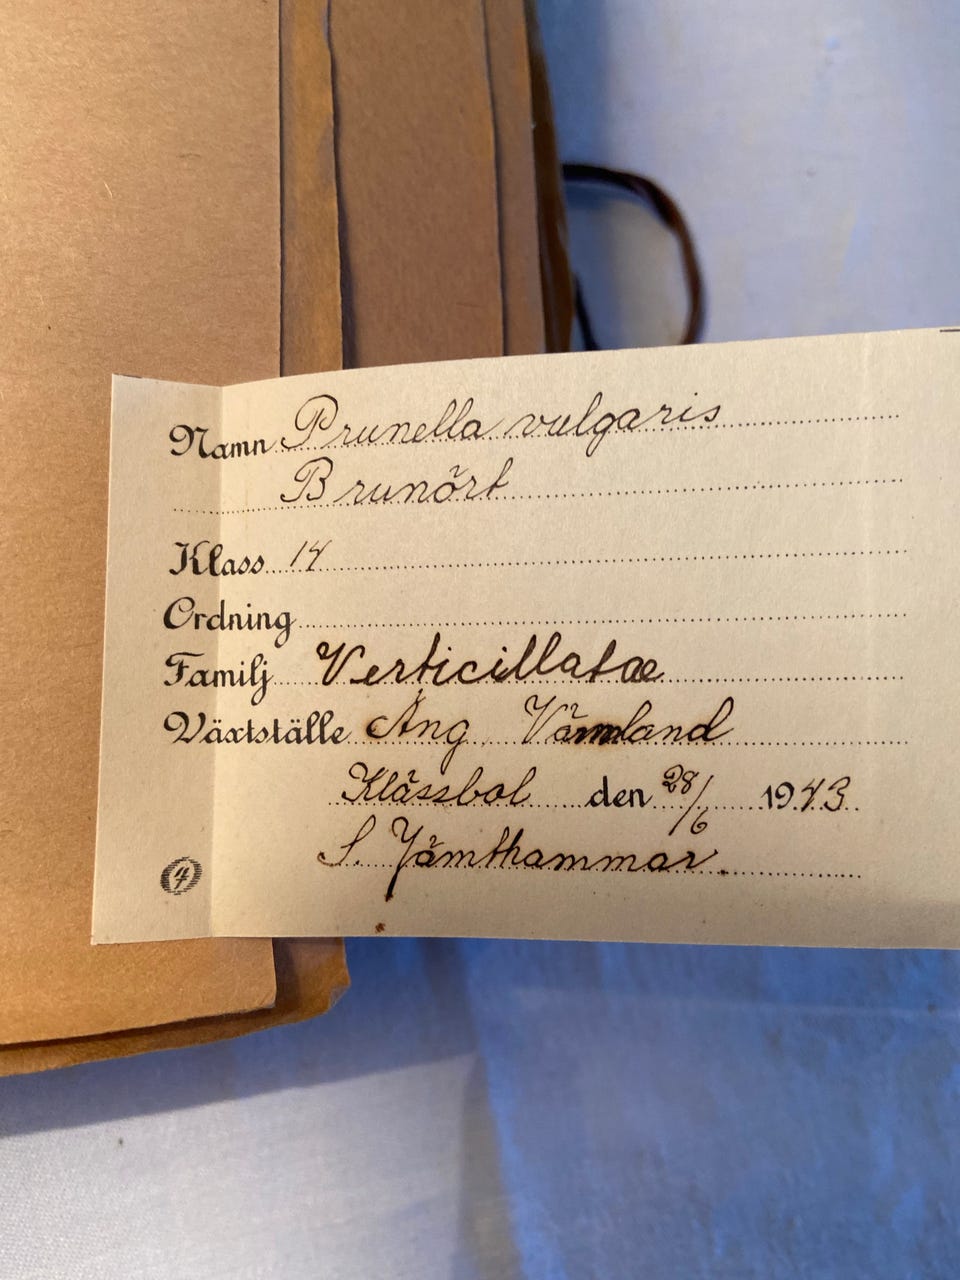 Namn Prunella vulgaris
Brunört
Klass 14
Ordning
Familj Verticillatae
Växtställe Äng Värmland
Klässbol den 28/6 1943
S. Jämthammar.
4